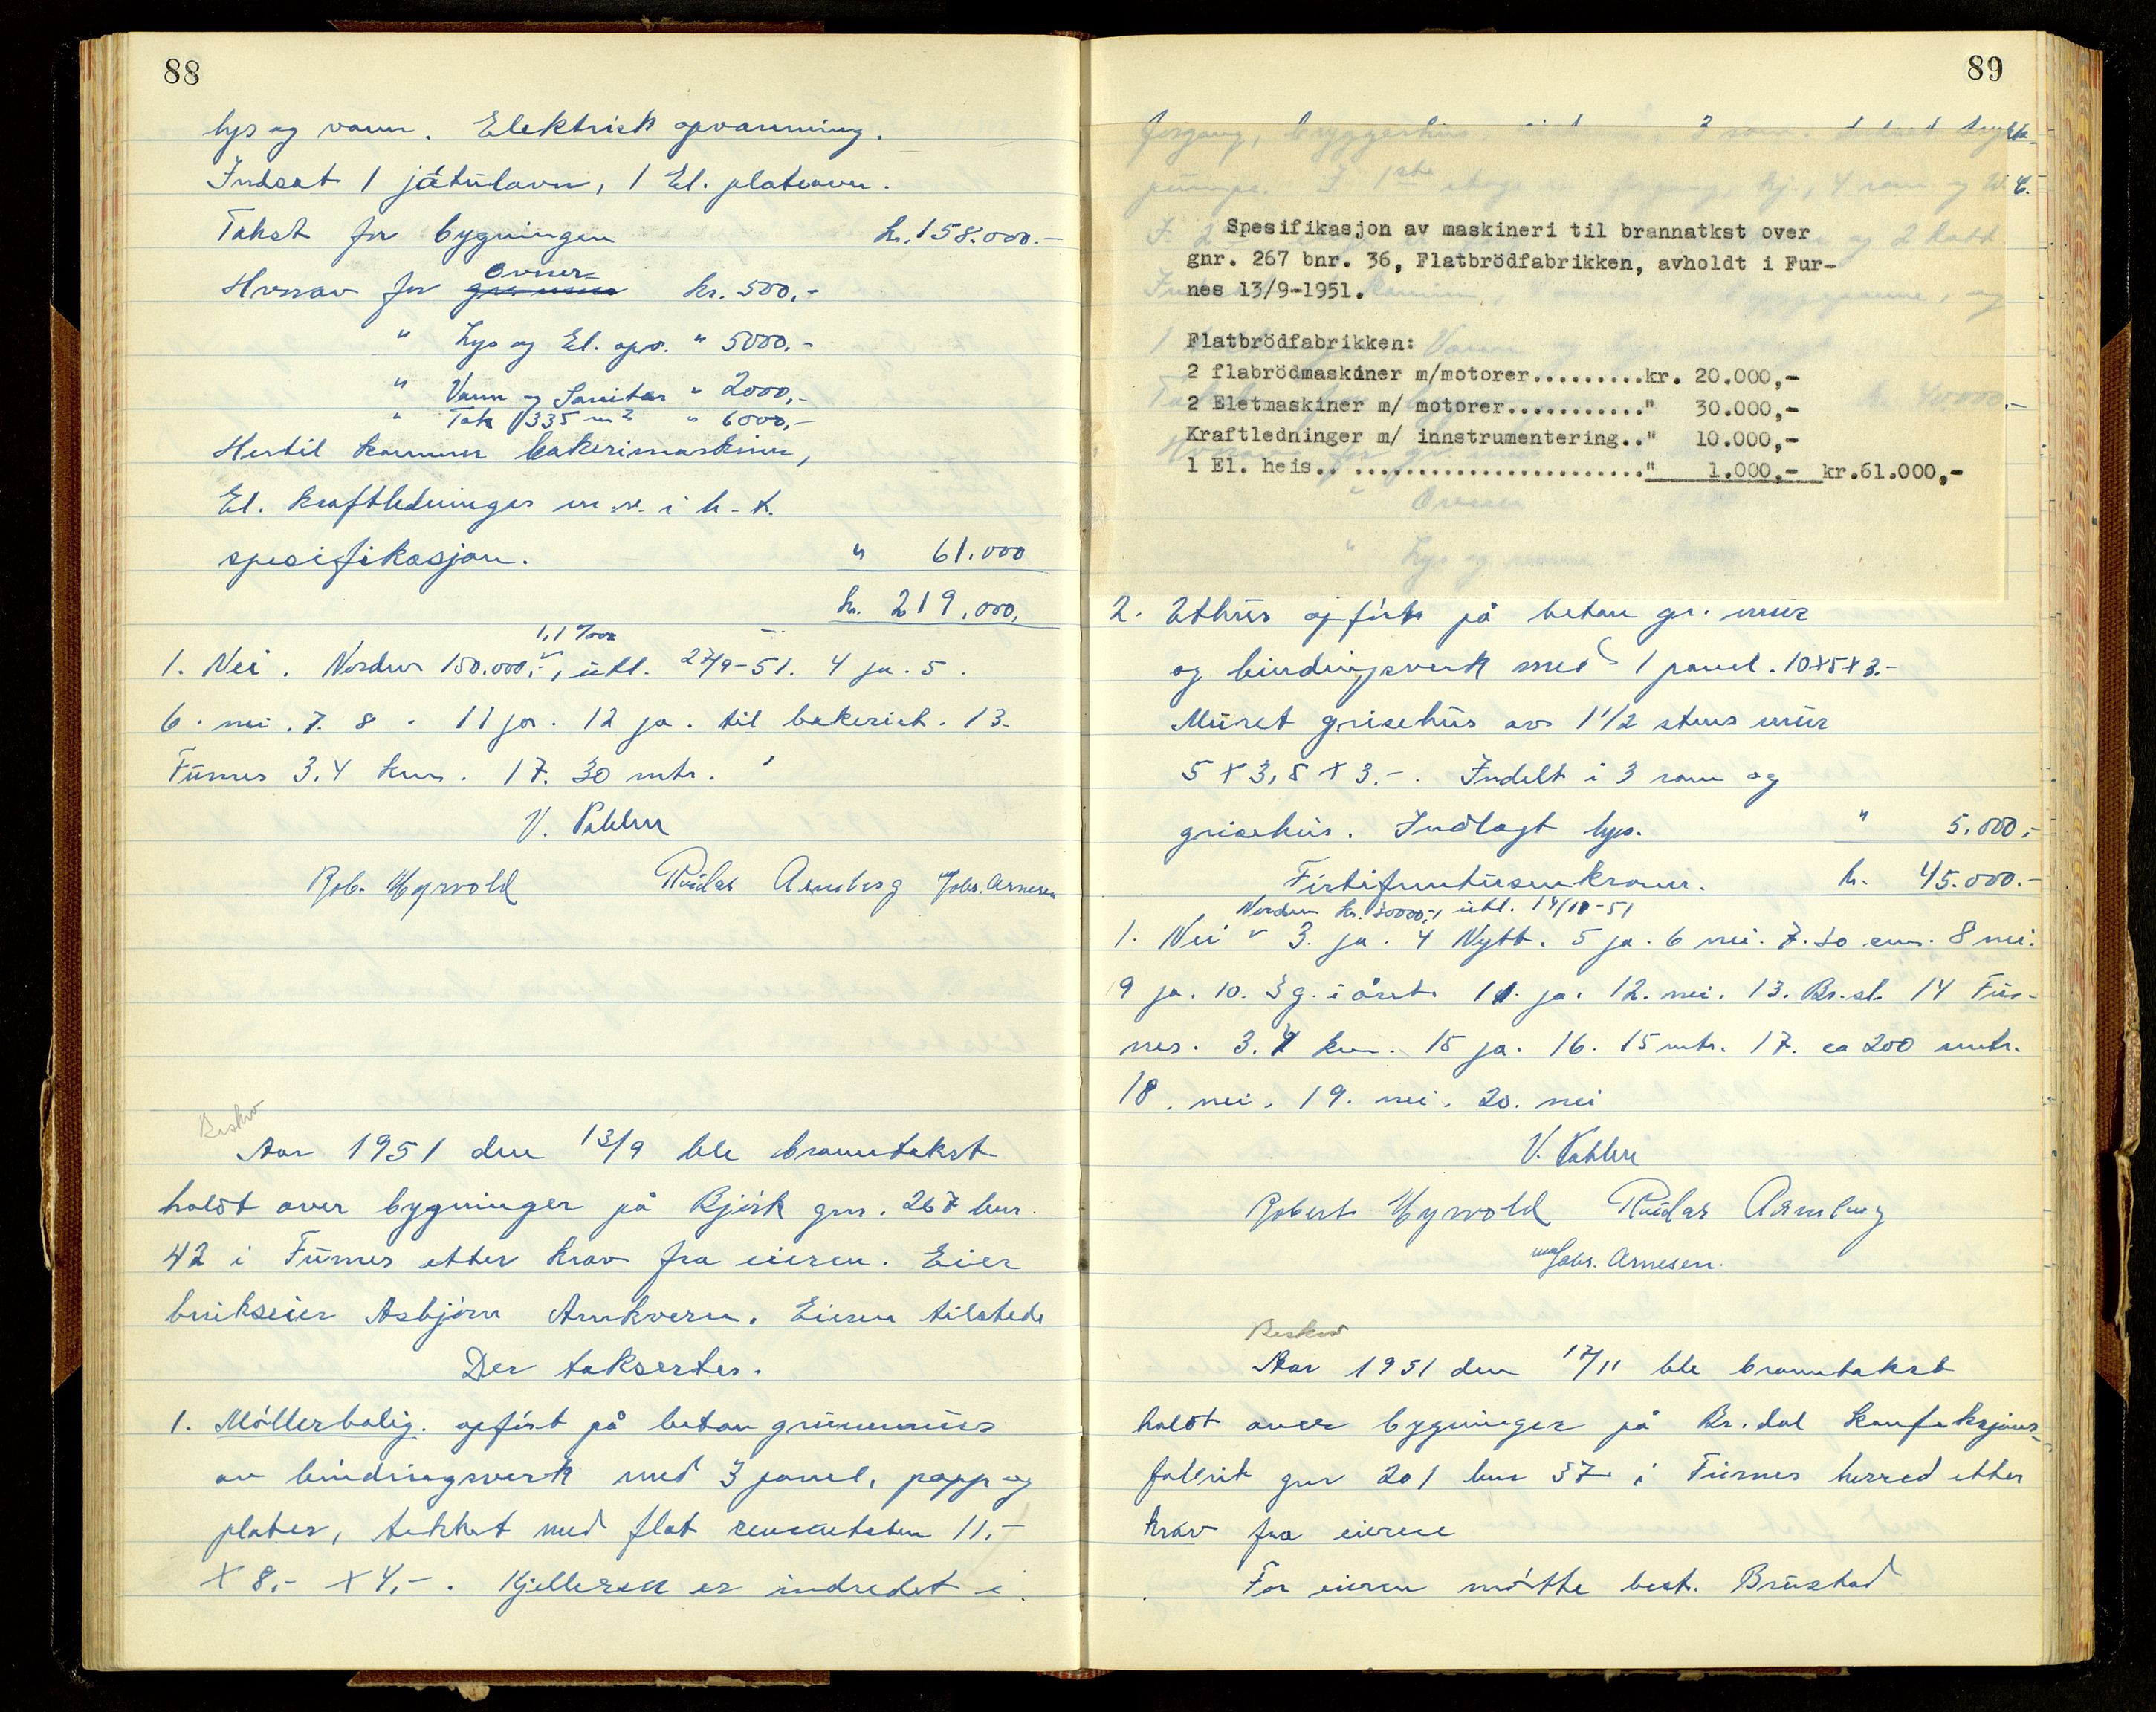 88
lys og vann. Elektrisk opvarming.
Indsat 1 jøtulovn, 1 El. plateovn.
Takst for bygningen kr. 158.000.-
Hvorav for grunnmur Ovner kr. 500,-
" Lys og El. opv. " 5000,-
" Vann og Sanitær " 2000,-
" Tak 335 m2 " 6000,-
Hertil kommer bakerimaskiner,
El. kraftledninger m.v. i h.t.
spesifikasjon. " 61.000
kr. 219.000,
1,1 ‰
1. Nei. Norden 150.000,-, utl. 27/9-51. 4 ja. 5.
6. nei. 7. 8. 11 ja. 12 ja. til bakerih. 13.
Furnes 3.4 km. 17. 30 mtr.
V. Pahlen
Rob. Myrvold Reidar Arnsberg Johs. Arnesen
Beskr
Aar 1951 den 13/9 ble branntakst
holdt over bygninger på Bjørk gnr. 267 bnr.
42 i Furnes etter krav fra eieren. Eier
brukseier Asbjørn Arnkværn. Eieren tilstede
Der taksertes.
1. Møllerbolig. opført på betong grunnmur
av bindingsverk med 3 panel, papp og
plater, tekket med flat cementsten 11,-
x 8,- x 4,-. Kjelleren er indredet i
89
forgang, bryggerhus, 3 rom. Indsat trykk-
pumpe. I 1ste etage er forgang, kj., 4 rom og W.C.
Spesifikasjon av maskineri til brannatkst over
gnr. 267 bnr. 36, Flatbrödfabrikken, avholdt i Fur-
nes 13/9-1951.
Flatbrödfabrikken:
2 flabrödmaskiner m/motorer.........kr. 20.000,-
2 Eletmaskiner m/ motorer..........." 30.000,-
Kraftledninger m/ innstrumentering.." 10.000,-
1 El. heis.. ......................." 1.000,- kr.61.000,-
2. Uthus opført på betong gr. mur
og bindingsverk med 1 panel. 10x5x3.-
Muret grisehus av 1 1/2 stens mur
5 x 3,5 x 3.-. Indelt i 3 rom og
grisehus. Indlagt lys. " 5.000,-
Førtifemtusenkroner. kr. 45.000.-
Norden kr. 30000,- utl. 14/11-51
1. Nei v 3. ja. 4 Nytt. 5 ja. 6 nei. 7. 30 cm. 8 nei.
9 ja. 10. 3 g. i året. 11. ja. 12. nei. 13. Br.st. 14 Fur-
nes. 3.4 km. 15 ja. 16. 15 mtr. 17. ca 200 mtr.
18. nei. 19. nei. 20. nei
V. Pahlen
Robert Myrvold Reidar Arnsberg
Johs. Arnesen.
Beskr
Aar 1951 den 17/11 ble branntakst
holdt over bygninger på Br.dal Konfeksjons-
fabrik gnr 201 bnr 37 i Furnes herred etter
krav fra eieren
For eieren møtte best. Brustad